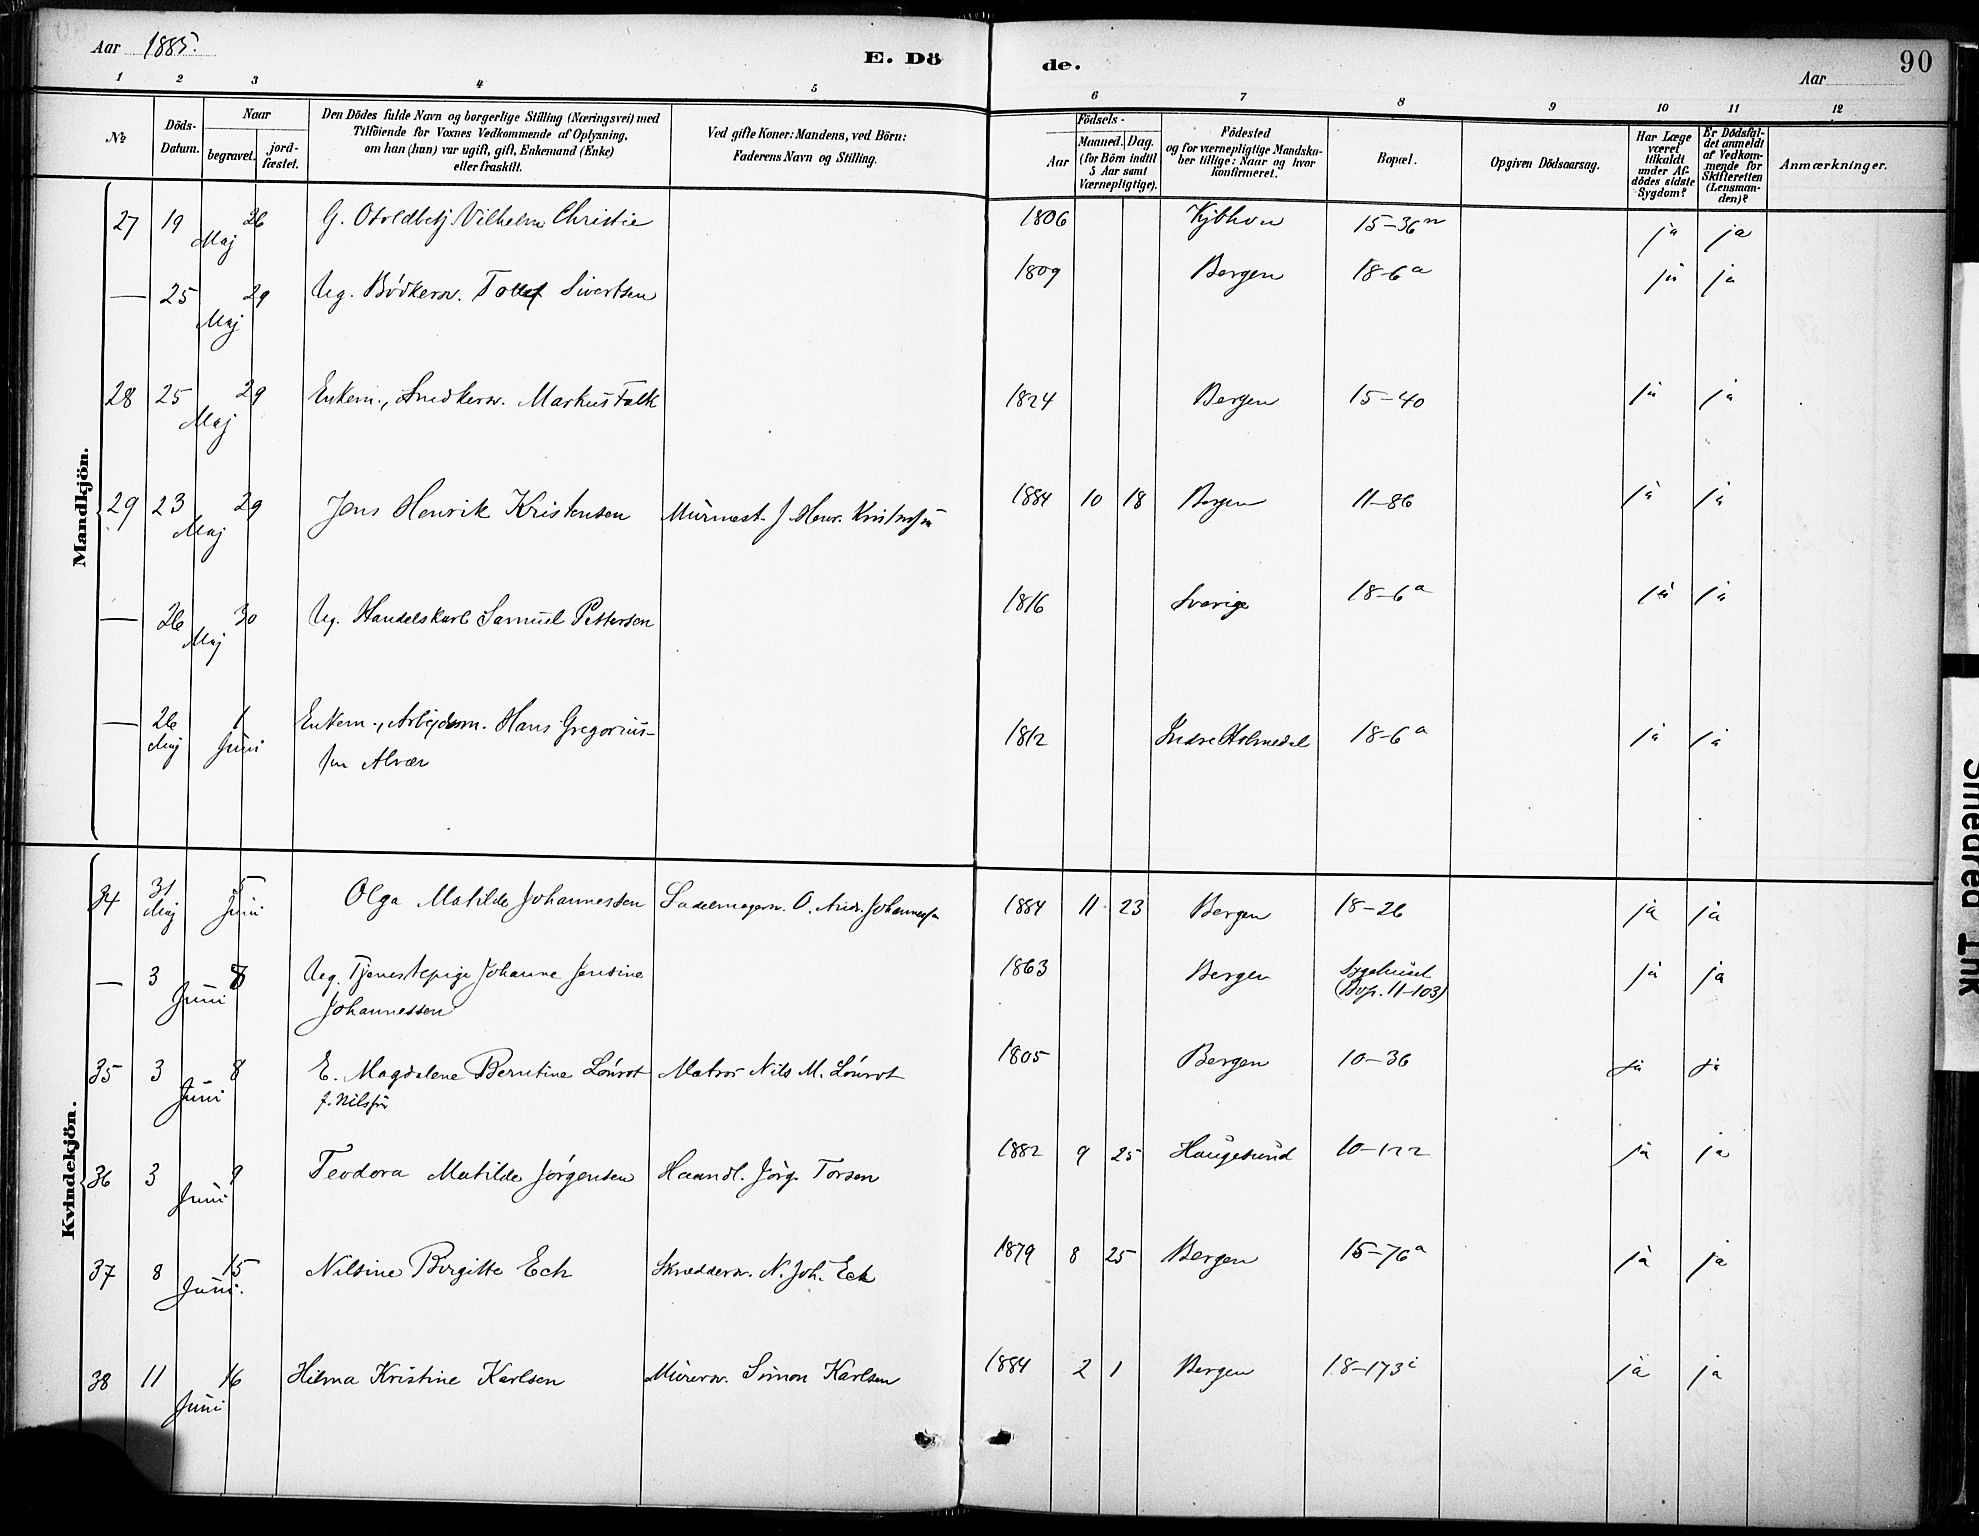 Aar 1885.
E. Dö
de.
Aar
90
1 2 3 4 5 6 7 8 9 10 11 12
No
Döds-
Datum.
Naar
begravet.
jord-
fæstet.
Den Dödes fulde Navn og borgerlige Stilling (Næringsvei) med
Tilföiende for Voxnes Vedkommende af Oplysning,
om han (hun) var ugift, gift, Enkemand (Enke)
eller fraskilt.
Ved gifte Koner: Mandens, ved Börn:
Faderens Navn og Stilling.
Födsels-
Aar
Maaned. Dag.
(for Börn indtil
5 Aar samt
Værnepligtige).
Födested
og for værnepligtige Mandska-
ber tillige: Naar og hvor
konfirmeret.
Bopæl.
Opgiven Dödsaarsag.
Har Læge
været
tilkaldt
under Af-
dödes sidste
Sygdom?
Er Dödsfal-
det anmeldt
af Vedkom-
mende for
Skifteretten
(Lensman-
den)?
Anmærkninger.
Mandkjön.
27 19 26 Maj G. Vilhelm Christie 1806 Kjbhvn 15-36 ja ja
— 25 29 Maj Ug. Bödkersv. Sivertsen 1809 Bergen 18-6a ja ja
28 25 29 Maj Enkem., Snedkersv. Markus Falk 1824 Bergen 15-40 ja ja
29 23 29 Maj Jens Henrik Kristensen Murmest. J. Henr. Kristensen 1884 10 18 Bergen 11-86 ja ja
— 26 30 Maj Ug. Handelskarl Samuel Pettersen 1816 Sverige 18-6a ja ja
— 26 Maj 1 Juni Enkem., Arbejdsm. Hans Gregorius-
sen Alvær 1812 Indre Holmedal 18-6a ja ja
Kvindekjön.
34 31 Maj 5 Juni Olga Matilde Johannessen Sadelmagersv. O. Andr. Johannessen 1884 11 23 Bergen 18-26 ja ja
— 3 8 Juni Ug. Tjenestepige Johanne Jensine
Johannessen 1863 Bergen Sygehuset
(Bop. 11-103) ja ja
35 3 8 Juni E. Magdalene Berntine Lönrot Matros Nils M. Lönrot 1805 Bergen 10-36 ja ja
f. Nilssen
36 3 9 Juni Teodora Matilde Jörgensen Haandl. Jörg. Torsen 1882 9 25 Haugesund 10-122 ja ja
37 8 15 Juni. Nilsine Birgitte Eck Skræddersv. N. Joh. Eck 1879 8 25 Bergen 15-76a ja ja
38 11 16 Juni Hilma Kristine Karlsen Murersv. Simon Karlsen 1884 2 1 Bergen 18-173i ja ja
Smeared Ink